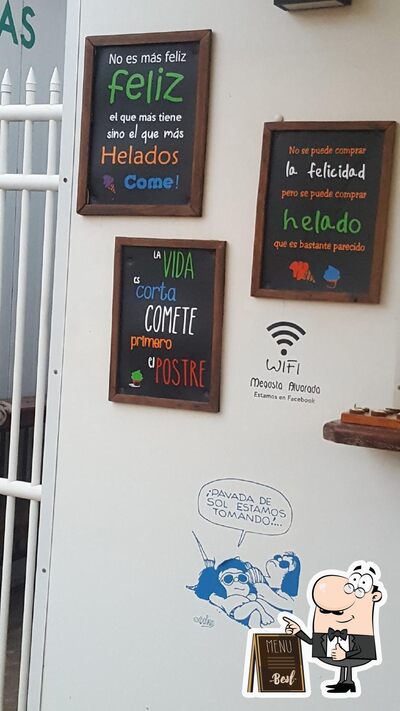 AS
No es más feliz
feliz
el que más tiene
sino el que más
Helados
Come!
No se puede comprar
la felicidad
pero se puede comprar
helado
que es bastante parecido
LA VIDA
es
corta
COMETE
primero
el
POSTRE
WIFI
Megusta Alvarado
Estamos en Facebook
¡PAVADA DE
SOL ESTAMOS
TOMANDO!...
MENU
Best